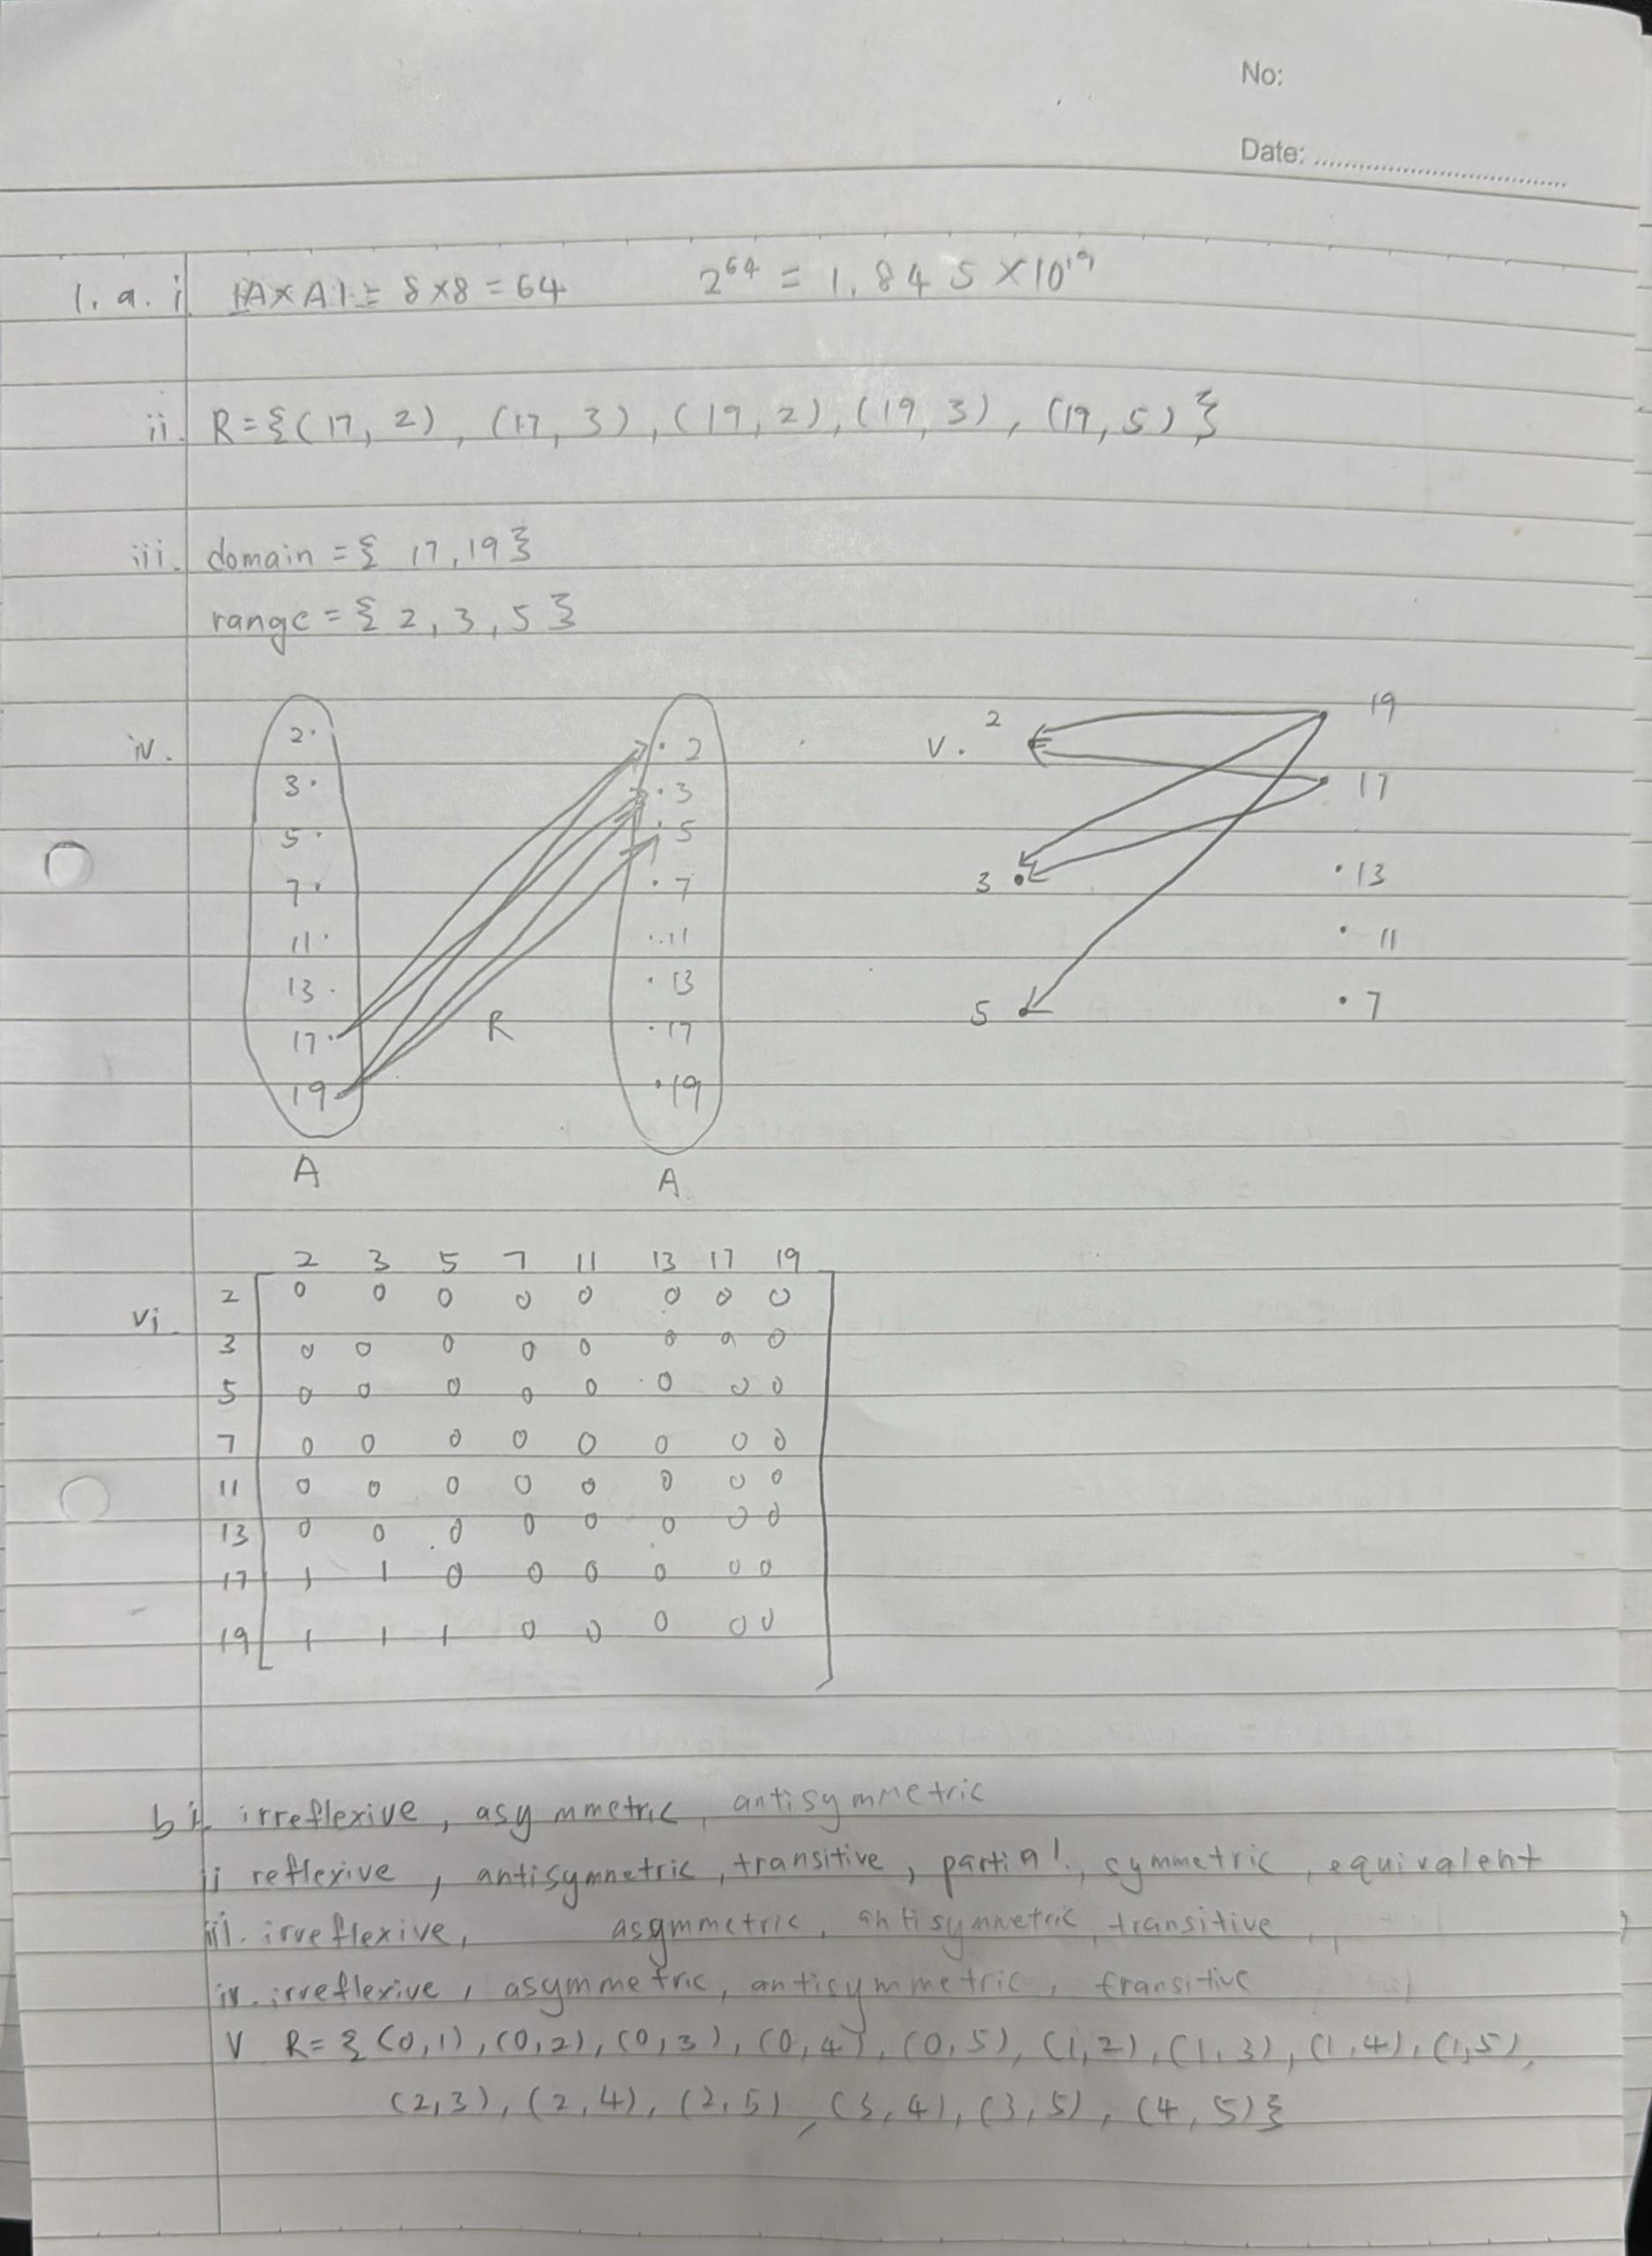 No:
Date:
1. a. i |A×A| = 8×8 = 64 2^64 = 1.845 ×10^19
ii. R={(17, 2), (17, 3), (19, 2), (19, 3), (19, 5)}
iii. domain = { 17, 19}
range = { 2, 3, 5 }
iv.
2
3
5
7
11
13
17
19
A
R
2
3
5
7
11
13
17
19
A
v.
2
3
5
19
17
13
11
7
vi.
2 3 5 7 11 13 17 19
2 0 0 0 0 0 0 0 0
3 0 0 0 0 0 0 0 0
5 0 0 0 0 0 0 0 0
7 0 0 0 0 0 0 0 0
11 0 0 0 0 0 0 0 0
13 0 0 0 0 0 0 0 0
17 1 1 0 0 0 0 0 0
19 1 1 1 0 0 0 0 0
b i. irreflexive, asymmetric, antisymmetric
ii reflexive, antisymmetric, transitive, partial, symmetric, equivalent
iii. irreflexive, asymmetric, antisymmetric, transitive,
iv. irreflexive, asymmetric, antisymmetric, transitive
V R= {(0,1), (0,2), (0,3), (0,4), (0,5), (1,2), (1,3), (1,4), (1,5),
(2,3), (2,4), (2,5), (3,4), (3,5), (4,5)}